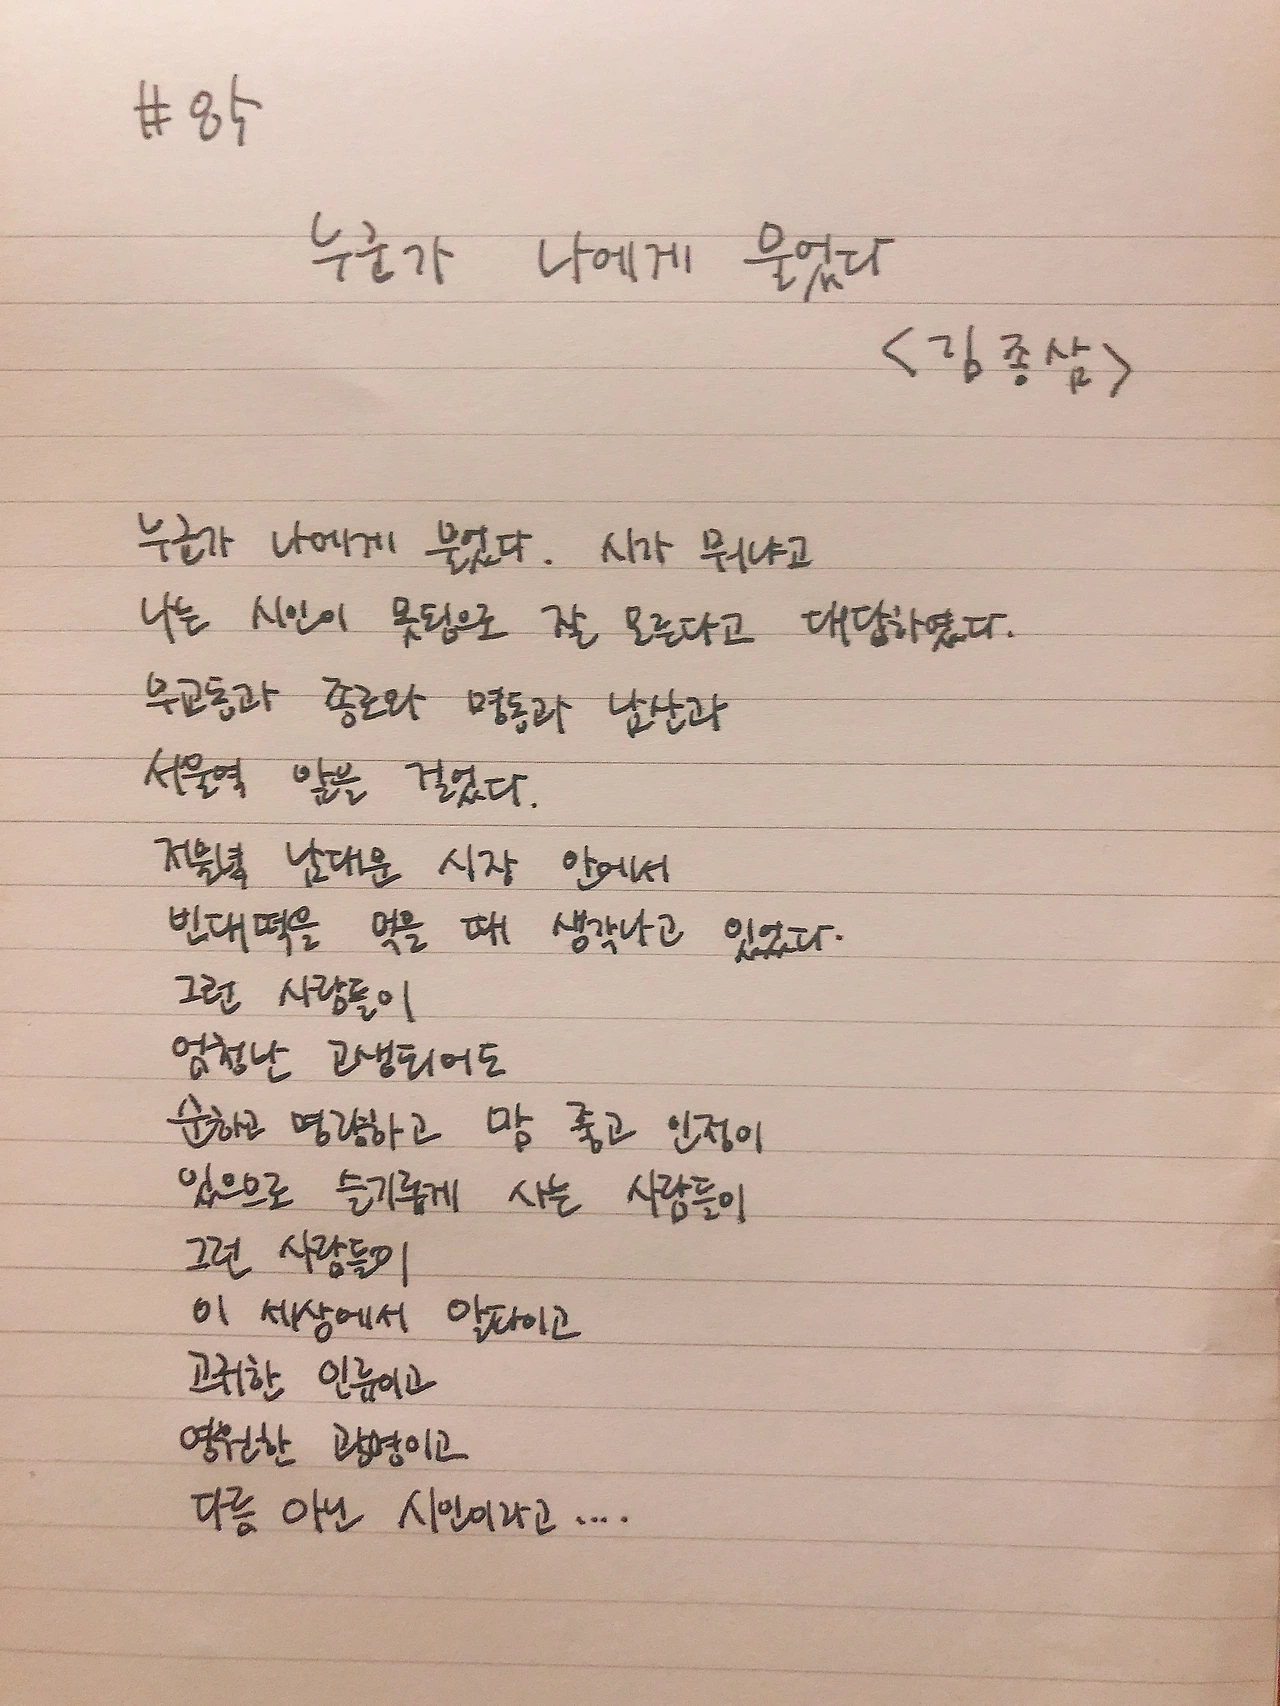 #84
누군가 나에게 물었다
<김종삼>
누군가 나에게 물었다. 시가 뭐냐고
나는 시인이 못됨으로 잘 모른다고 대답하였다.
무교동과 종로와 명동과 남산과
서울역 앞을 걸었다.
저물녘 남대문 시장 안에서
빈대떡을 먹을 때 생각나고 있었다.
그런 사람들이
엄청난 고생되어도
순하고 명랑하고 맘 좋고 인정이
있으므로 슬기롭게 사는 사람들이
그런 사람들이
이 세상에서 알파이고
고귀한 인류이고
영원한 광명이고
다름 아닌 시인이라고....